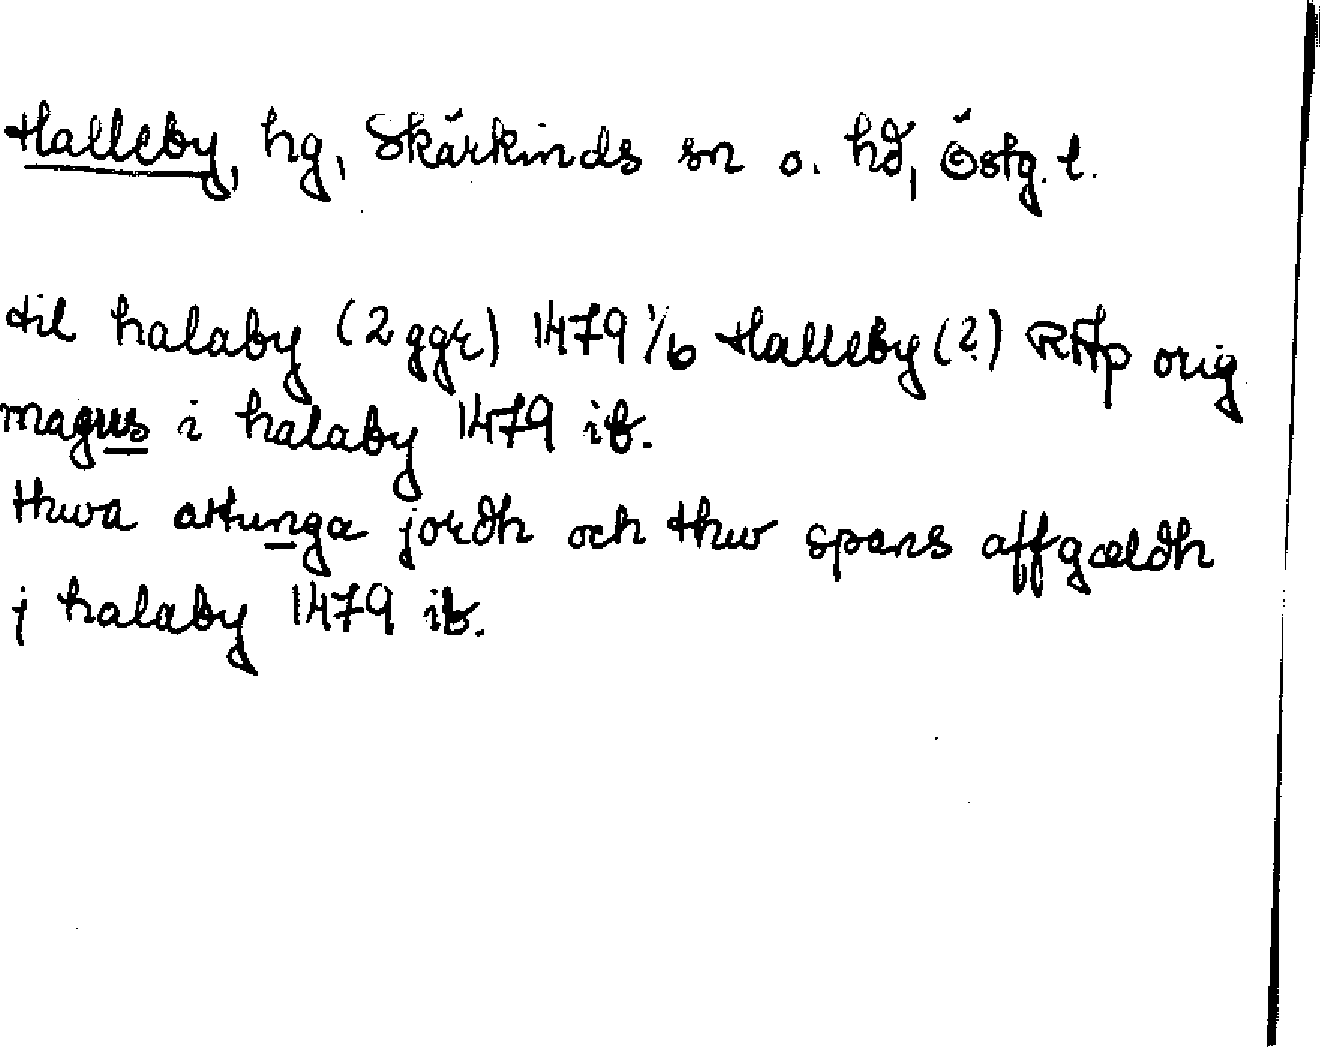 Halleby, hg, Skärkinds sn o. hd, Östg. l.
til halaby (2 ggr) 1479 1/6 Halleby (?) RAp orig
magnus i halaby 1479 ib.
thwa attunga jordh och thw spans affgældh
j halaby 1479 ib.